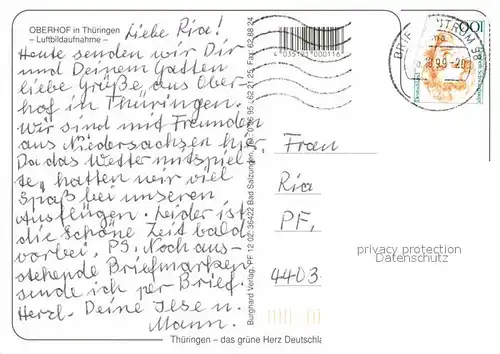 OBERHOF in Thüringen
– Luftbildaufnahme –
Liebe Ria!
Heute senden wir Dir
und Deinem Gatten
liebe Grüße aus Ober-
hof in Thüringen.
Wir sind mit Freunden
aus Niedersachsen hier.
Da das Wetter mitspiel-
te, hatten wir viel
Spaß bei unseren
Ausflügen. Leider ist
die schöne Zeit bald
vorbei. PS. Noch aus-
stehende Briefmarken
sende ich per Brief.
Herzl. Deine Ilse u.
Mann.
Burghard Verlag, PF 12 02, 36422 Bad Salzungen, 62 21 25, Fax: 62 88 24
4 035181 000116
BRIEFZENTRUM 98
99-20
100
Frau
Ria
PF,
4403
privacy protection
Datenschutz
Thüringen – das grüne Herz Deutschla